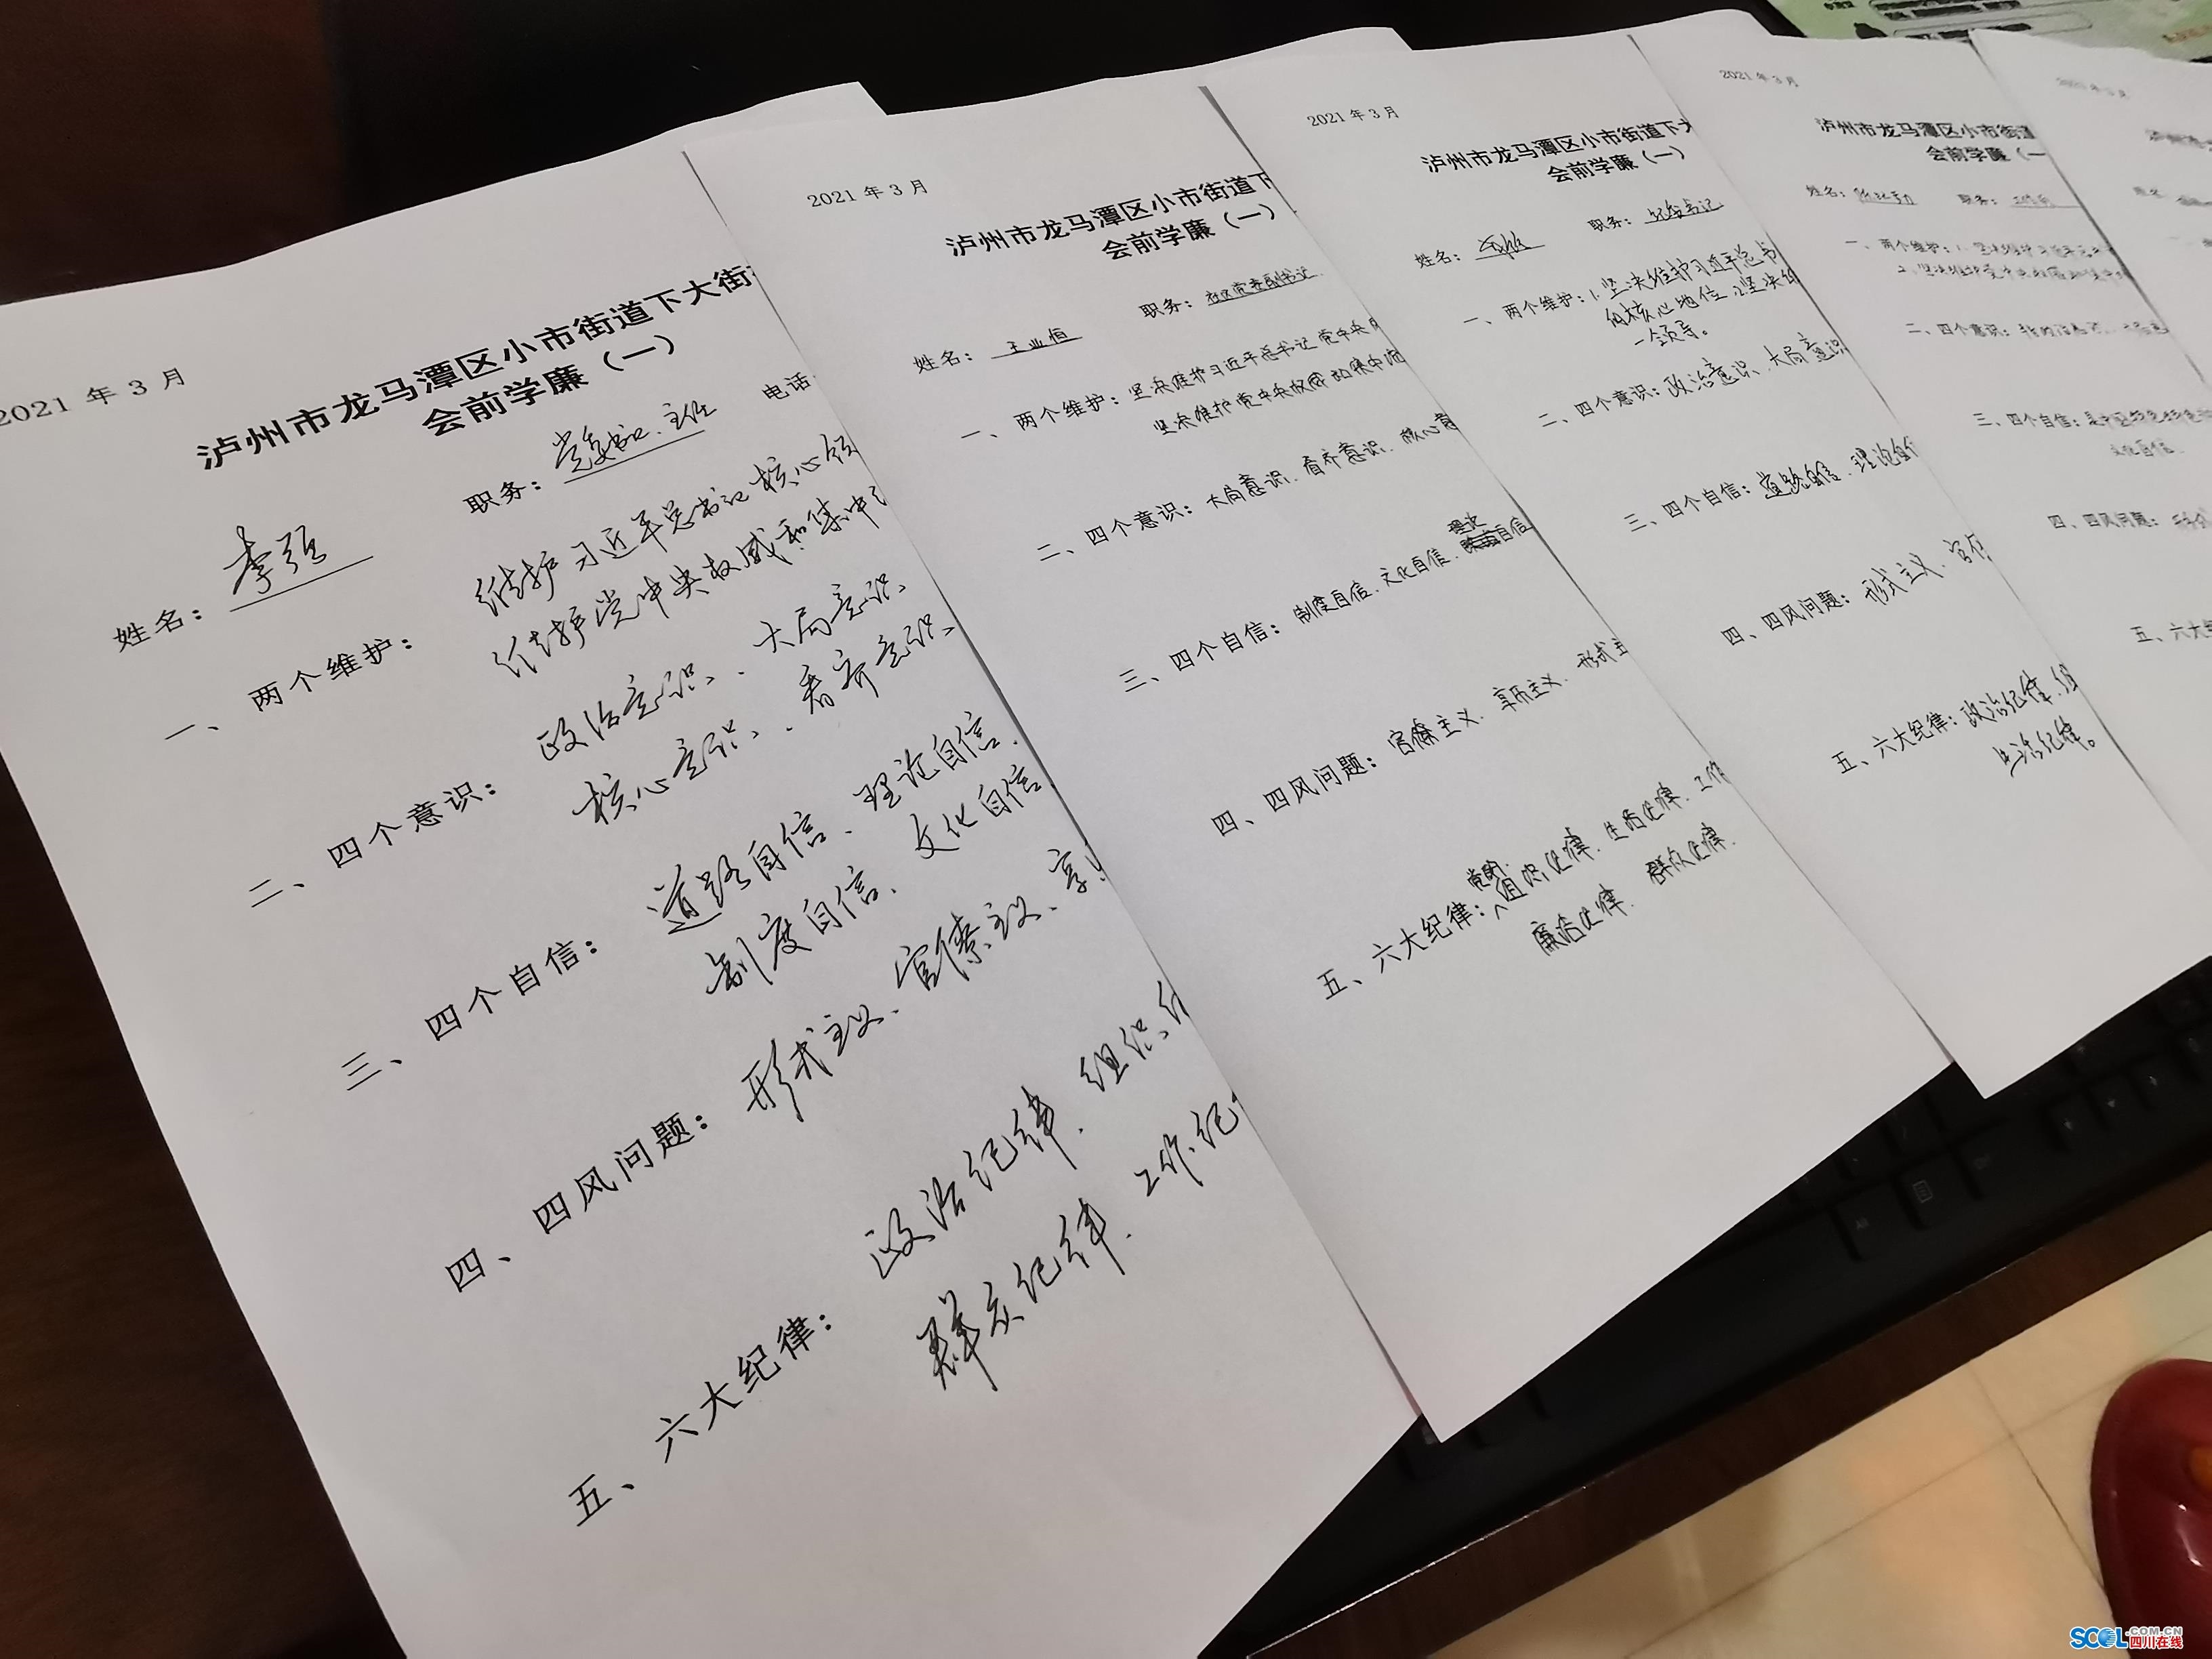 2021 年 3 月
泸州市龙马潭区小市街道下大街
会前学廉（一）
姓名： 李强 职务： 党委书记、主任 电话
一、两个维护： 维护习近平总书记核心
维护党中央权威和集中
二、四个意识： 政治意识、大局意识、
核心意识、看齐意识、
三、四个自信： 道路自信、理论自信、
制度自信、文化自信、
四、四风问题： 形式主义、官僚主义、享
五、六大纪律： 政治纪律、组织
群众纪律、工作纪
2021 年 3 月
泸州市龙马潭区小市街道下
会前学廉（一）
姓名： 职务： 社区党委副书记
一、两个维护： 坚决维护习近平总书记党中央
坚决维护党中央权威和集中
二、四个意识： 大局意识、看齐意识、核心意
三、四个自信： 制度自信、文化自信、理论自信
四、四风问题： 官僚主义、享乐主义、形式主
五、六大纪律： 组织纪律、生活纪律、工作
廉洁纪律、群众纪律、
2021 年 3 月
泸州市龙马潭区小市街道下大
会前学廉（一）
姓名： 职务： 纪委书记
一、两个维护： 1.坚决维护习近平总书
的核心地位 2.坚决维
一领导。
二、四个意识： 政治意识、大局意识
三、四个自信： 道路自信、理论自信
四、四风问题： 形式主义、官僚
五、六大纪律： 政治纪律、组
生活纪律。
2021 年 3 月
泸州市龙马潭区小市街道
会前学廉（一
姓名： 职务：
一、两个维护： 1.坚决维护习近平总书
2.坚决维护党中央权威和集中
二、四个意识：
三、四个自信：
文化自信
四、四风问题：
五、六大纪
SCOL.COM.CN
四川在线